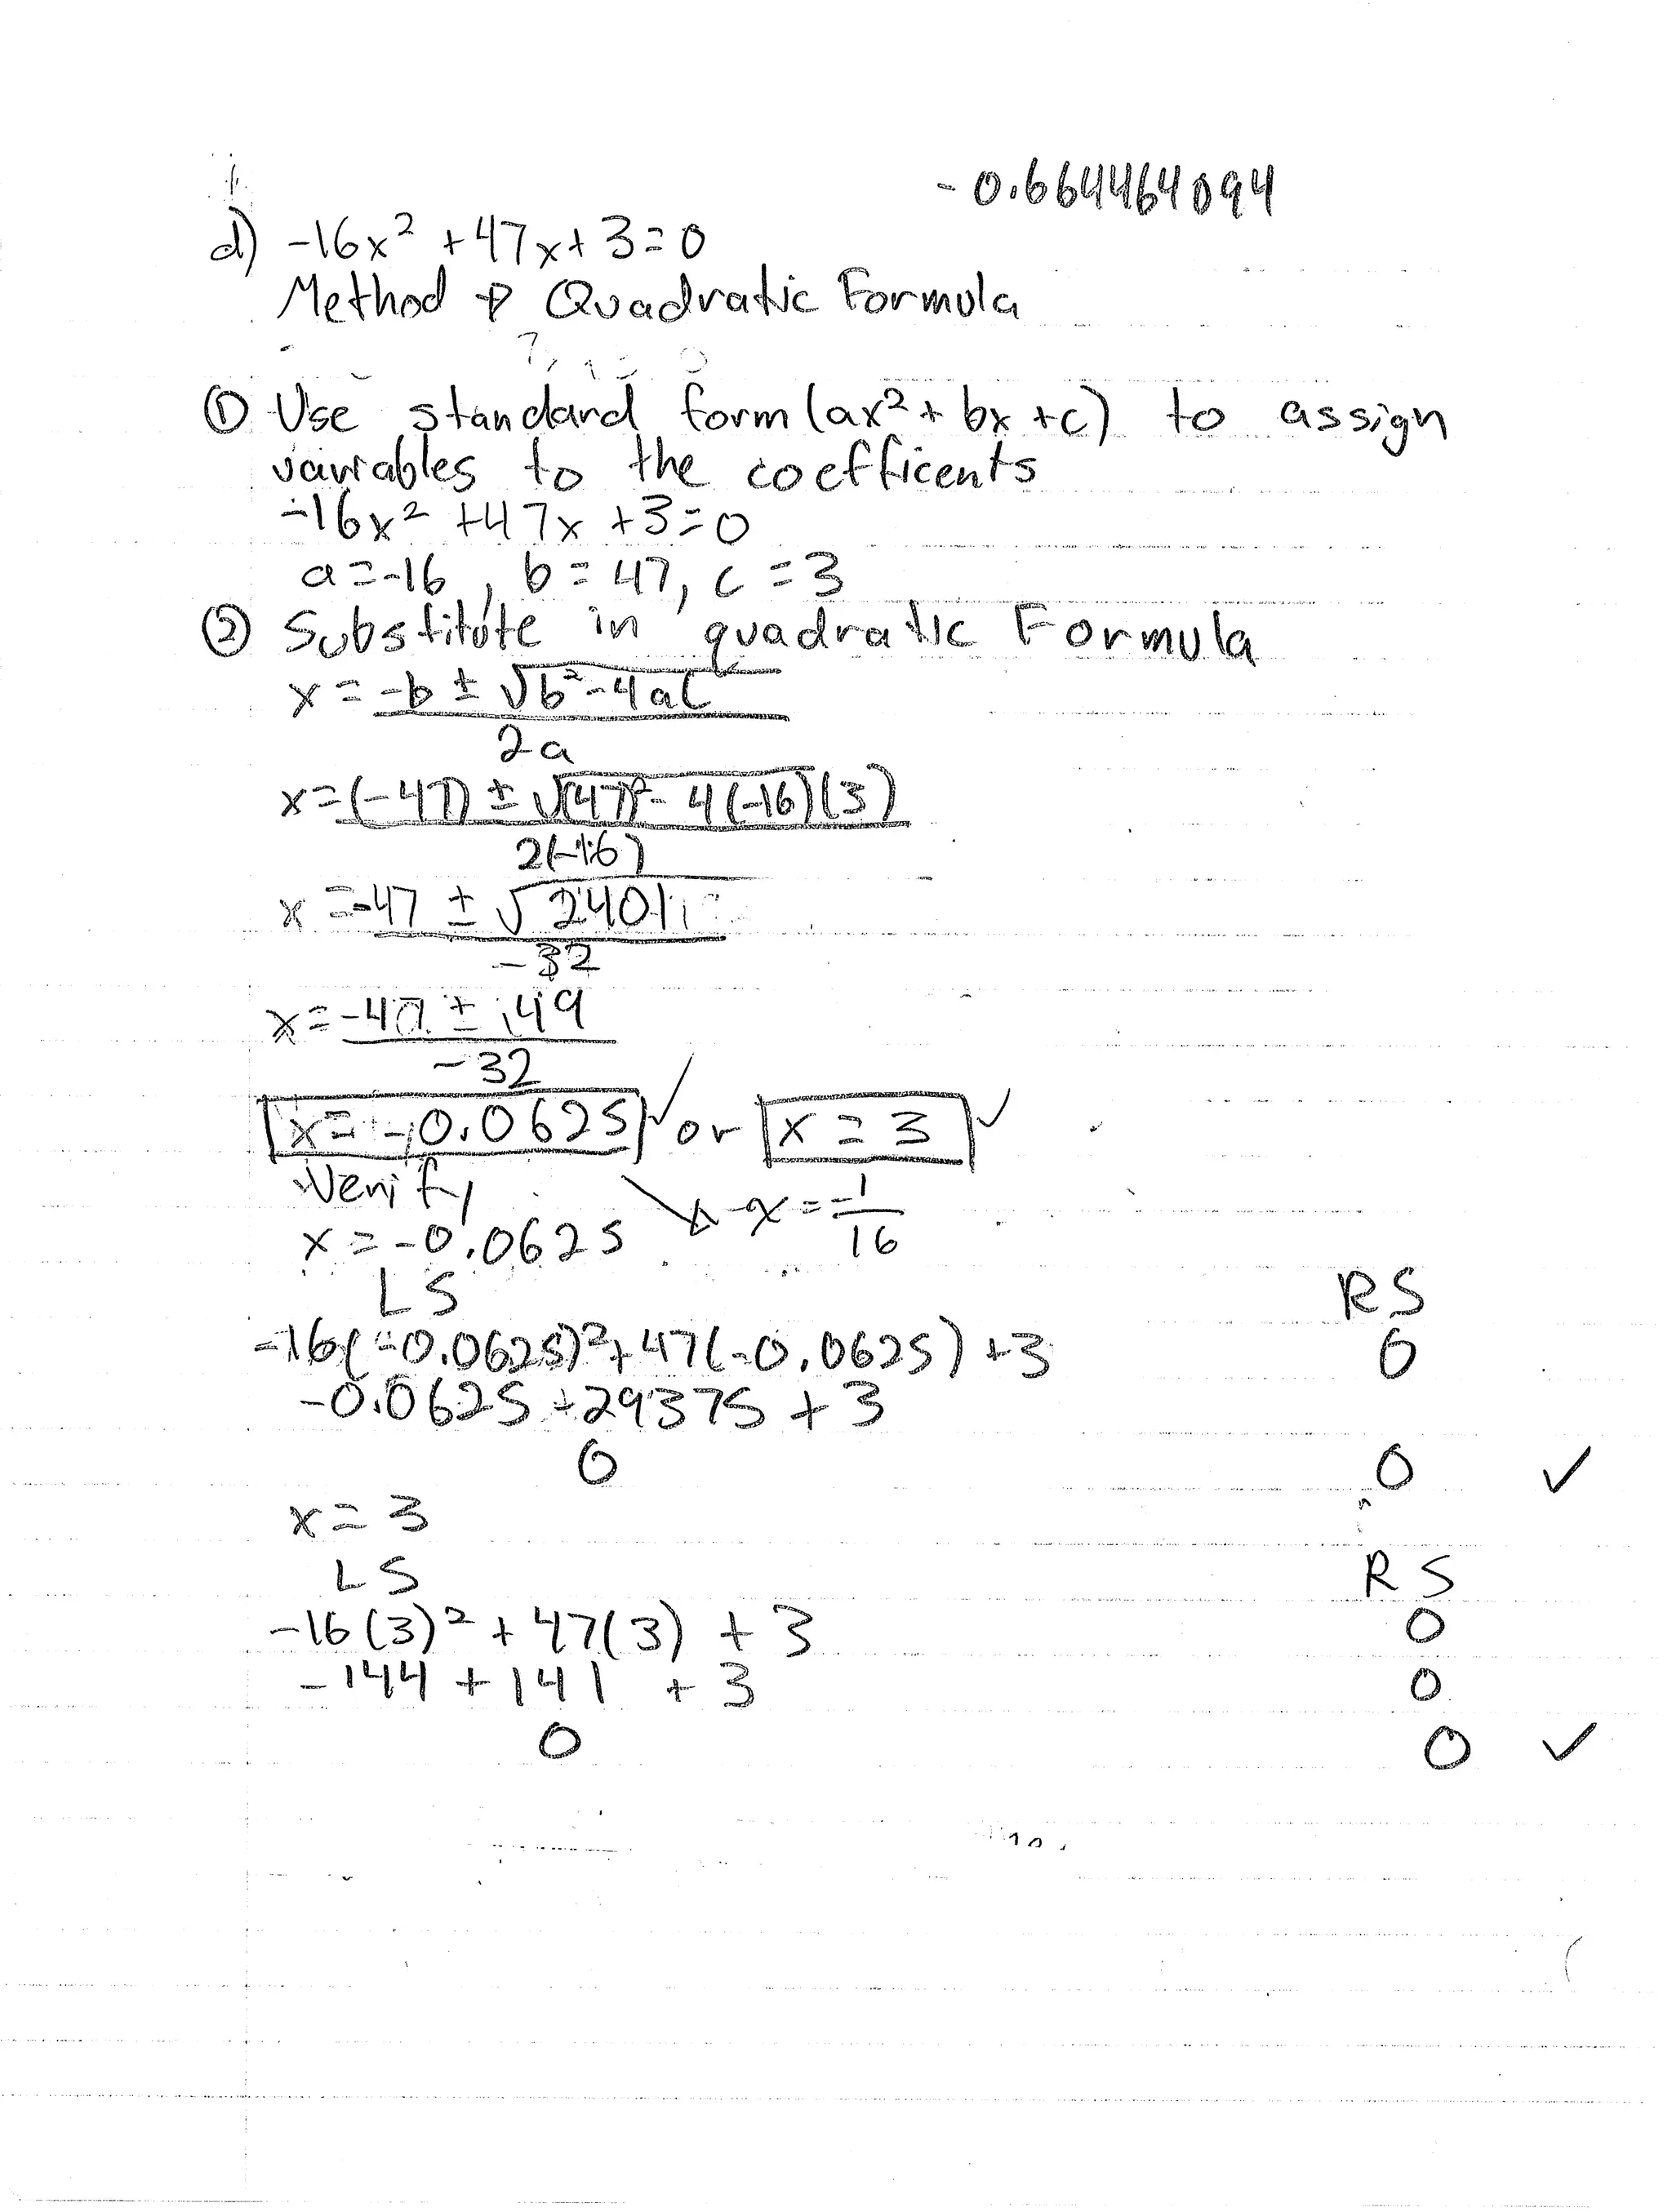 - 0.664464094
d) -16x² + 47x + 3 = 0
Method → Quadratic Formula
① Use standard form (ax² + bx + c) to assign
variables to the coefficents
-16x² + 47x + 3 = 0
a = -16, b = 47, c = 3
② Substitute in quadratic Formula
x = -b ± √b² - 4ac
2a
x = (-47) ± √(47)² - 4(-16)(3)
2(-16)
x = -47 ± √2401
-32
x = -47 ± 49
-32
x = -0.0625 ✓ or x = 3 ✓
Verify
↘ x = -1/16
x = -0.0625
LS RS
-16(-0.0625)² + 47(-0.0625) + 3 0
-0.0625 + 29375 + 3
0 0 ✓
x = 3
LS RS
-16(3)² + 47(3) + 3 0
-144 + 141 + 3 0
0 0 ✓